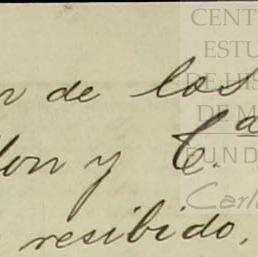 de los
y C.ª
resibido.
CENT
ESTU
DE HIS
DE M
FUND
Carlo